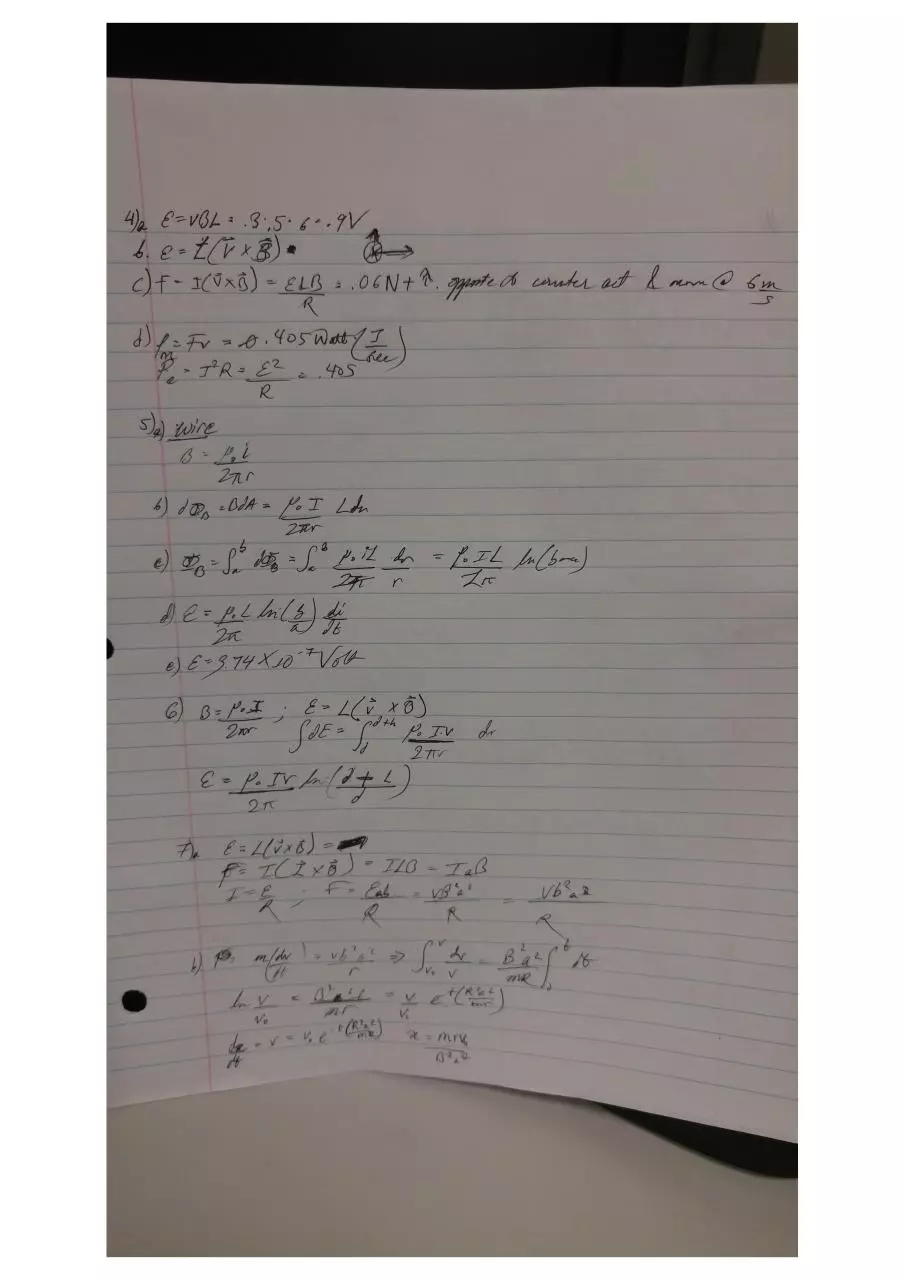 4)a ε = vBL = .3·.5·6 = .9V
b. ε = L(v⃗ × B⃗)
c) F = I(v⃗×B⃗) = εLB/R = .06N + î. opposite to counter act & move @ 6 m/s
d) Pm = Fv = 0.405 Watt (J/sec)
Pe = I²R = ε²/R = .405
5)a) wire
B = μ₀i/2πr
b) dΦB = BdA = μ₀I/2πr Ldr
c) ΦB = ∫ₐᵇ dΦB = ∫ₐᴮ μ₀iL/2π dr/r = μ₀IL/2π ln(b
d) ε = μ₀L/2π ln(b/a) di/dt
e) ε = 9.74 × 10⁻⁷ Volt
6) B = μ₀I/2πr ; ε = L(v⃗ × B⃗)
∫dE = ∫_d^{d+h} μ₀I·v/2πr dr
ε = μ₀Iv/2π ln(d+L/d)
7)a ε = L(v⃗×B⃗) =
F = I(L⃗×B⃗) = ILB = IaB
I = ε/R ; F = εab/R = vB²a²/R = Vb²a²/R
b) m(dv/dt) = vb²a²/r ⇒ ∫_{v₀}^{v} dv/v = B²a²/mR ∫₀ᵗ dt
ln v/v₀ = B²a²t/mr = v/v₀ e
dx/dt = v = v₀e x = mrv₀/B²a²